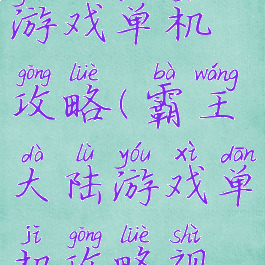 游戏单机
gōng lüè bà wáng
攻略(霸王
dà lù yóu xì dān
大陆游戏单
jī gōng lüè shì
机攻略视